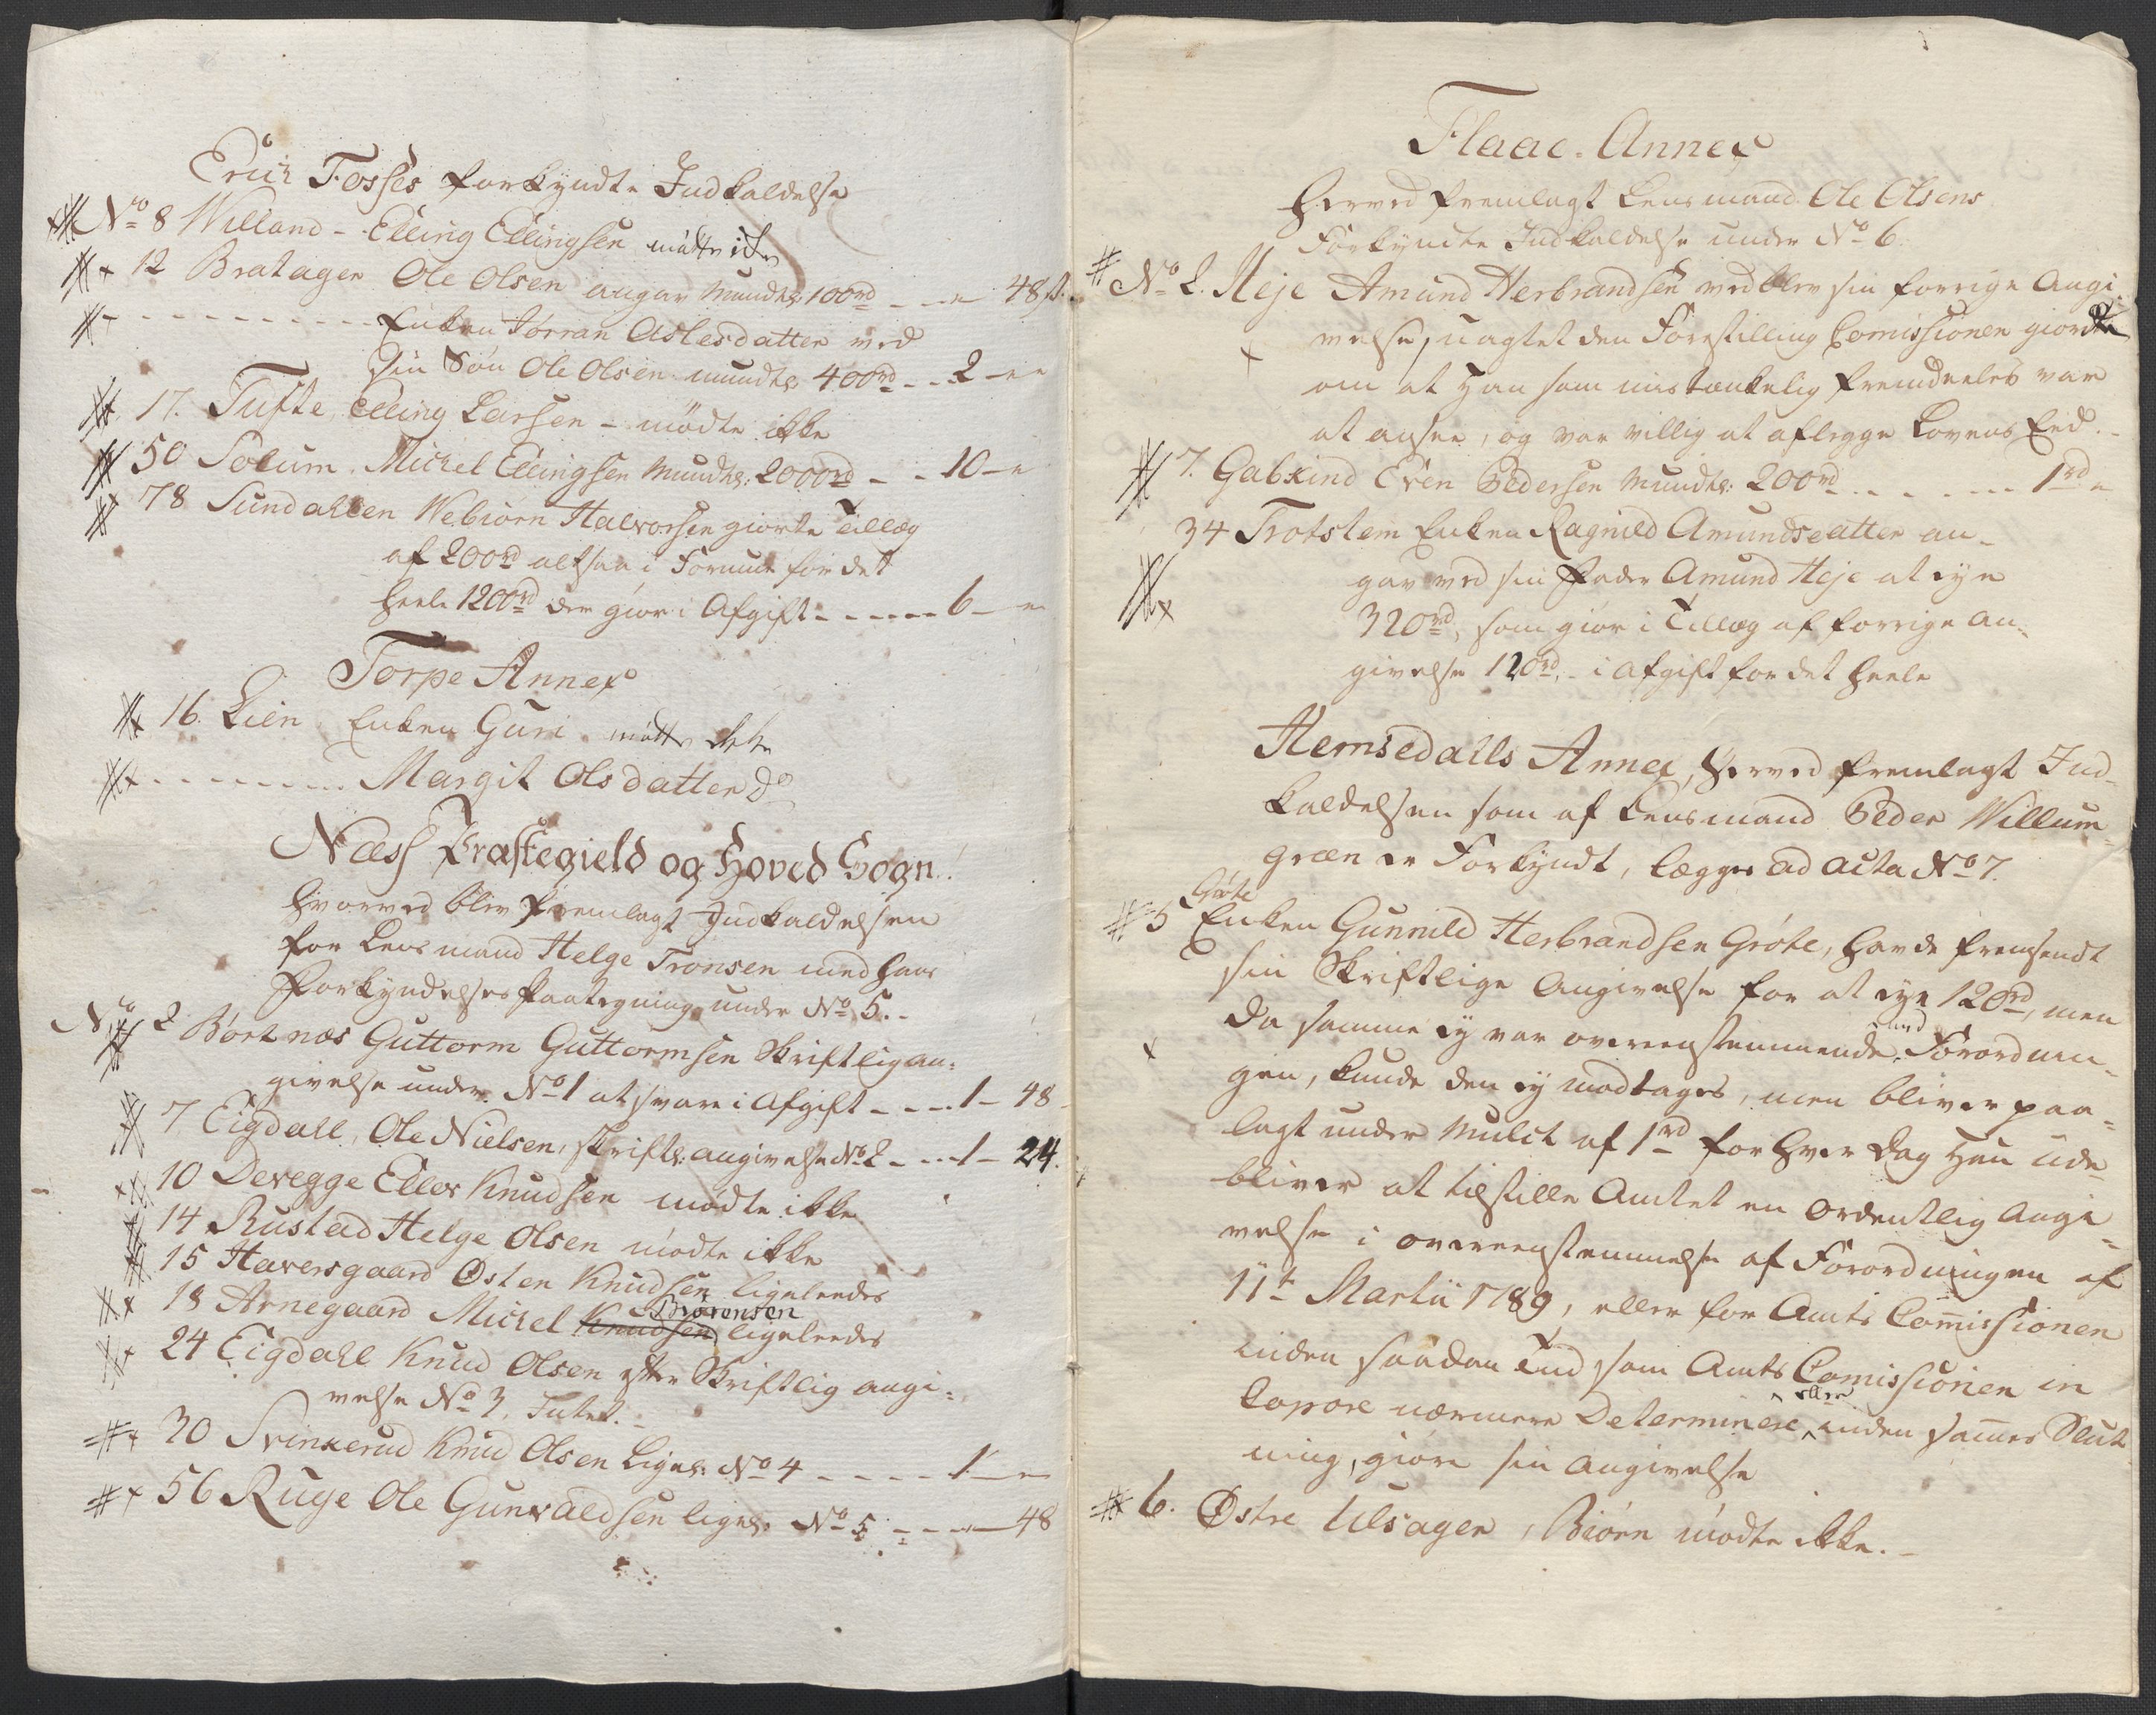 Erich Fosses forkyndte Indkaldelse
No 8 Willand - Elling Ellingsen mötte ikke
12 Bratager Ole Olsen angav Mundtl: 100rd - - 48 s.
- - - - Enken Jörran Aslesdatter ved
Sin Sön Ole Olsen mundtl: 400rd - - 2 - "
17. Tufte, Elling Larssen - mödte ikke
50 Solum. Michel Ellingsen Mundtl: 2000rd - - 10 - "
78 Sundallen Webiörn Halvorsen giorte Tillæg
af 200rd altsaa i Formue for det
heele 1200rd der giör i Afgift - - - - 6 - "
Torpe Annex
16. Lien Enken Guri mötte ikke
- - - - Margit Olsdatter do
Næss Præstegield og Hoved Sogn.
hvorved blev fremlagt Indkaldelsen
for Lensmand Helge Tronsen med hans
Forkyndelses Paategning under No 5. -
No 2 Börtnæs Guttorm Guttormsen Skriftlig an-
givelse under No 1 at svare i Afgift - - - 1 - 48
7 Eigdall, Ole Nielsen, skriftl: angivelse No 2 - - 1 - 24.
10 Deregge Edler Knudsen mödte ikke
14 Rustad Helge Olsen mödte ikke
15 Haversgaard Østen Knudsen ligeleedes
Biörensen
18 Arnegaard Michel Knudsen ligeleedes
24 Eigdall Knud Olsen efter Skriftlig angi-
velse No 3. Intet. -
30 Svinkerud Knud Olsen Ligel: No 4 - - - - 1 - "
56 Ruge Ole Gunvaldsen ligel: No 5 - - - " - 48
Flaae. Annex
Herved fremlagt Lensmand Ole Olsens
Forkyndte Indkaldelse under No 6.
No 2. Heje Amund Herbrandsen vedblev sin forrige Angi-
velse, uagtet den Forestilling Comissionen giorde
om at Han som mistænkelig fremdeeles var
at ansee, og var villig at aflegge Lovens Eed. -
7. Gabkind Even Pedersen Mundtl: 200rd - - - - 1rd "
34 Trotstem Enken Ragnild Amundsdatter an-
gav ved sin Fader Amund Heje at eye
320rd, som giör i Tillæg af forrige an-
givelse 120rd, - i afgift for det heele
Hemsedalls Annex, herved fremlagt Ind-
kaldelsen som af Lensmand Peder Willum-
græn er Forkyndt, lægges ad acta No 7.
Gröte
5 Enken Gunnild Herbrandsen Gröte, havde fremsendt
sin Skriftlige Angivelse for at eye 120rd, men
da samme ey var overeenstemmende med Forordnin-
gen, kunde den ey modtages, men bliver paa-
lagt under Mulct af 1rd for hver Dag Hun ude-
bliver at tilstille Amtet en Ordentlig Angi-
velse i overeenstemmelse af Forordningen af
11te Martii 1789, eller for Amts Comissionen
inden saadan Tid som Amts Comissionen in
Copore nærmere Determinere, eller inden sammes Slut-
ning, giöre sin angivelse
6. Østre Ulsager, Biörn mödte ikke. -